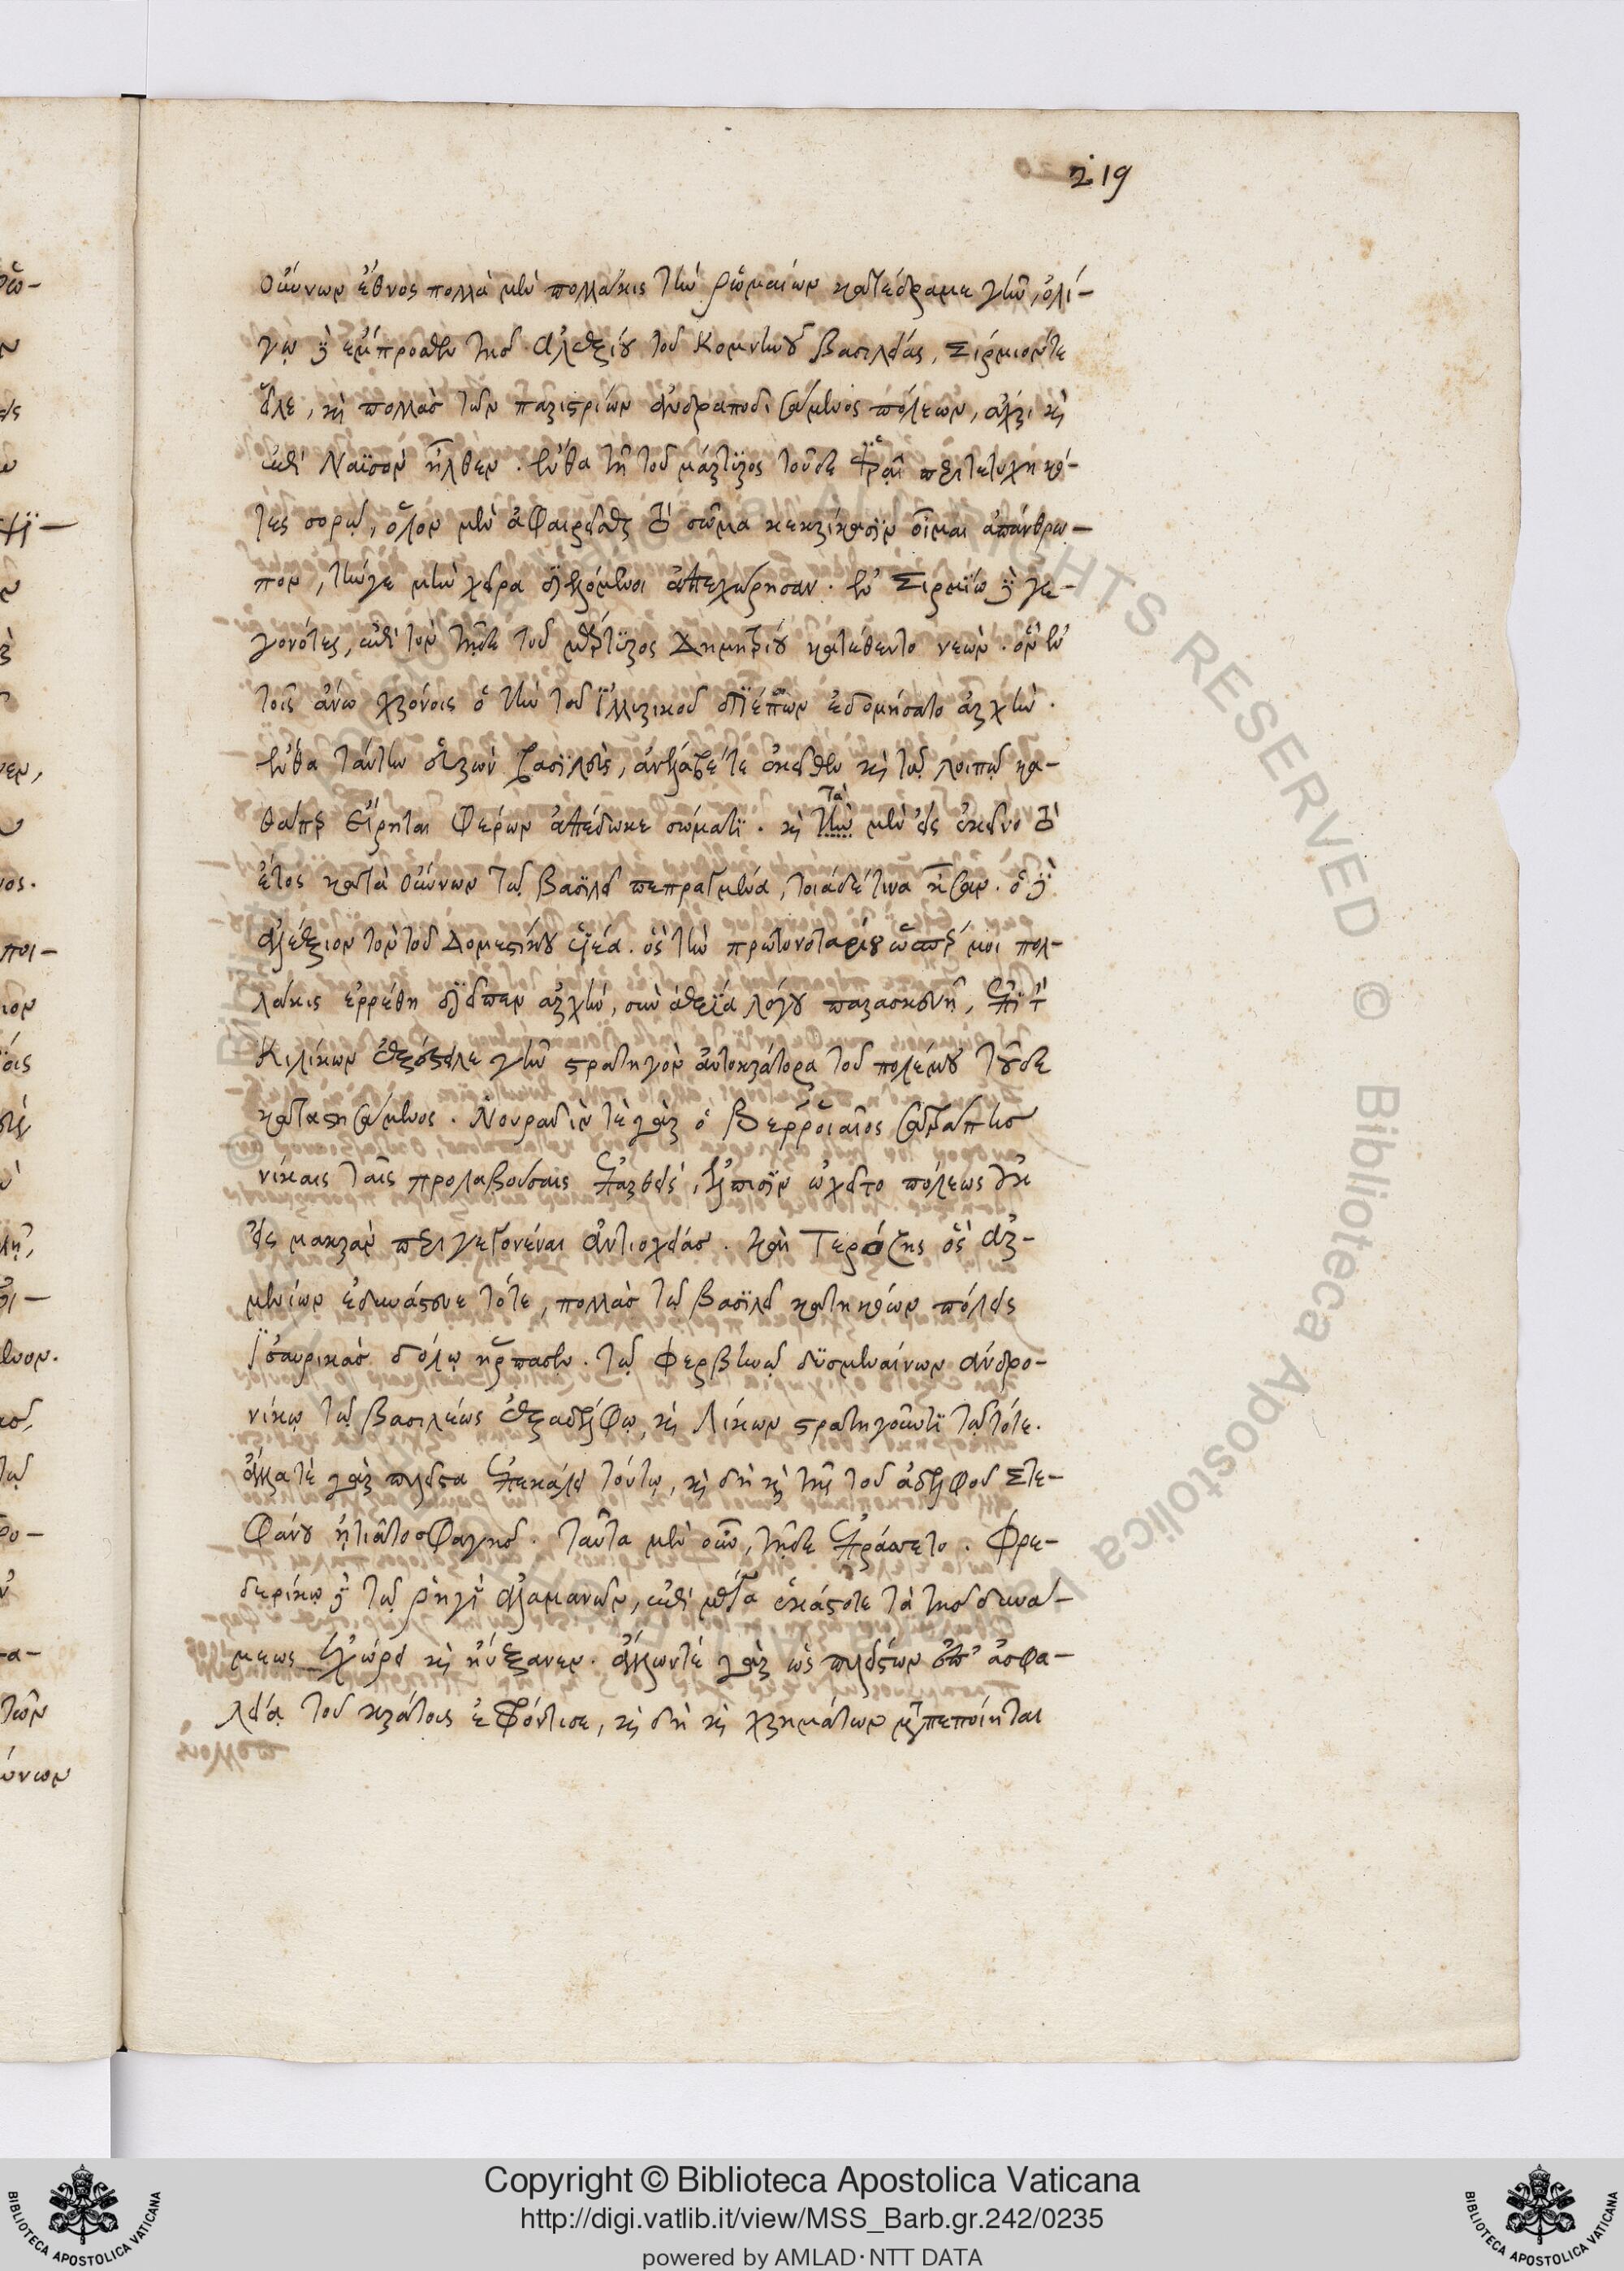 219
Οὔννων ἔθνος πολλὰ μὲν πολλάκις τὴν ῥωμαίων κατέδραμε γῆν, ὀλί-
γῳ δὲ ἔμπροσθεν τῆς Ἀλεξίου τοῦ Κομνηνοῦ βασιλείας, Σίρμιόν τε
εἷλε, καὶ πολλὰς τῶν παριστρίων ἀνδραποδισάμενος πόλεων, ἄχρι καὶ
ἐπὶ Ναϊσὸν ἦλθεν. ἔνθα τῇ τοῦ μάρτυρος τοῦδε ἱερᾷ περιτετυχηκό-
τες σορῷ, ὅλον μὲν ἀφαιρεῖσθαι τὸ σῶμα κεκρίκασιν οἶμαι ἀπάνθρω-
πον, τήν γε μὴν χεῖρα ἀνελόμενοι ἀπεχώρησαν. ἐν Σιρμίῳ δὲ γε-
γονότες, ἐπὶ τὸν τῇδε τοῦ μάρτυρος Δημητρίου κατέθεντο νεών. ὃν ἐν
τοῖς ἄνω χρόνοις ὁ τὴν τοῦ Ἰλλυρικοῦ διέπων ἐδομήσατο ἀρχήν.
ἔνθα ταύτην εὑρὼν βασιλεὺς, ἀνελάβετό τε ἐκεῖθεν καὶ τῷ λοιπῷ κα-
θάπερ εἴρηται φέρων ἀπέδωκε σώματι. καὶ τὰ μὲν ἐς ἐκεῖνο τὸ
ἔτος κατὰ Οὔννων τῷ βασιλεῖ πεπραγμένα, τοιάδε τινα ἦσαν. ὁ δὲ
Ἀλέξιον τὸν τοῦ Δομεστίκου υἱέα. ὃς τὴν πρωτονοταρίου ὥσπερ μοι πολ-
λάκις ἐρρέθη διεῖπεν ἀρχήν, σὺν παρασκευῇ, ἐπὶ τ
Κιλίκων ἐξέστειλε γῆν στρατηγὸν αὐτοκράτορα τοῦ πολέμου τοῦδε
καταστησάμενος. Νουραδίν τε γὰρ ὁ Βερροιαῖος σατράπης
νίκαις ταῖς προλαβούσαις ἐπαρθεὶς, ἐλπίσιν ὠχεῖτο πόλεως οὐκ
ἐς μακρὰν περιγεγονέναι Ἀντιοχείας. καὶ Τερόζης ὃς Ἀρ-
μενίων ἐδυνάστευε τότε, πολλὰς τῷ βασιλεῖ κατηκόων πόλεις
Ἰσαυρικὰς δόλῳ ἥρπασεν. τῷ Φερβηνῷ δυσμεναίνων Ἀνδρο-
νίκῳ τῷ βασιλέως ἐξαδέλφῳ, καὶ Λίκων στρατηγοῦντι τῷ τότε.
ἄλλα τε γὰρ πλεῖστα ἐπεκάλει τούτῳ, καὶ δὴ καὶ τῆς τοῦ ἀδελφοῦ Στε-
φάνου ᾐτιᾶτο σφαγῆς. ταῦτα μὲν οὖν, τῇδε ἐπράσσετο. Φρε-
δερίκῳ δὲ τῷ ῥηγὶ Ἀλαμανῶν, ἐπὶ μέγα ἑκάστοτε τὰ τῆς δυνά-
μεως ἐχώρει καὶ ηὔξανεν. ἄλλων τε γὰρ ὡς πλείστων ἐπ’ ἀσφα-
λείᾳ τοῦ κράτους ἐφρόντισε, καὶ δὴ καὶ χρημάτων πεποίηται
Copyright © Biblioteca Apostolica Vaticana
http://digi.vatlib.it/view/MSS_Barb.gr.242/0235
powered by AMLAD·NTT DATA
BIBLIOTECA APOSTOLICA VATICANA
BIBLIOTECA APOSTOLICA VATICANA